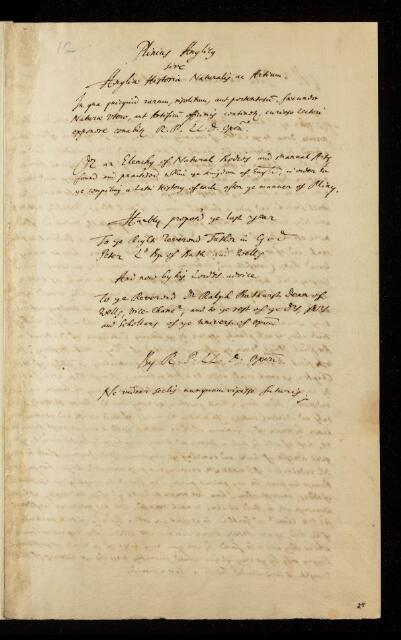 12
Plinius Anglicus
sive
Angliæ Historia Naturalis, ac Artium.
In qua quicquid rarum, insolitum, aut portentosum, fæcundo
Naturæ utero, aut Artificum officinis continetur, curioso lectori
exponere conabitur R. P. LL. D. Oxon
Or an Elenchus of Natural Bodies and manual Arts
found and practised within ye kingdom of England; in order to
ye compiling a Latin History of each after ye manner of Pliny.
Humbly propos'd ye last year
To ye Right Reverend Father in God
Peter Ld Bp of Bath and Wells
And now by his Lordps advice
To ye Reverend Dr Ralph Bathurst Dean of
Wells, Vice-Chanr; and to ye rest of ye Drs,
and Scholars of ye University of Oxon
By R. P. LL. D. Oxon
Ne videar seclis nunquam vixisse futuris